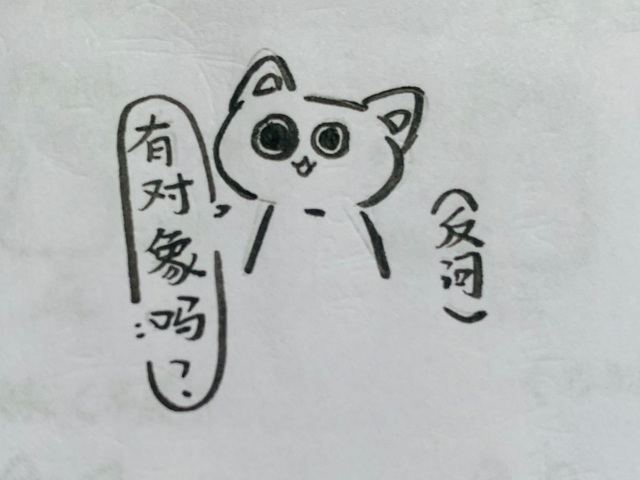 有对象吗？
（反问）